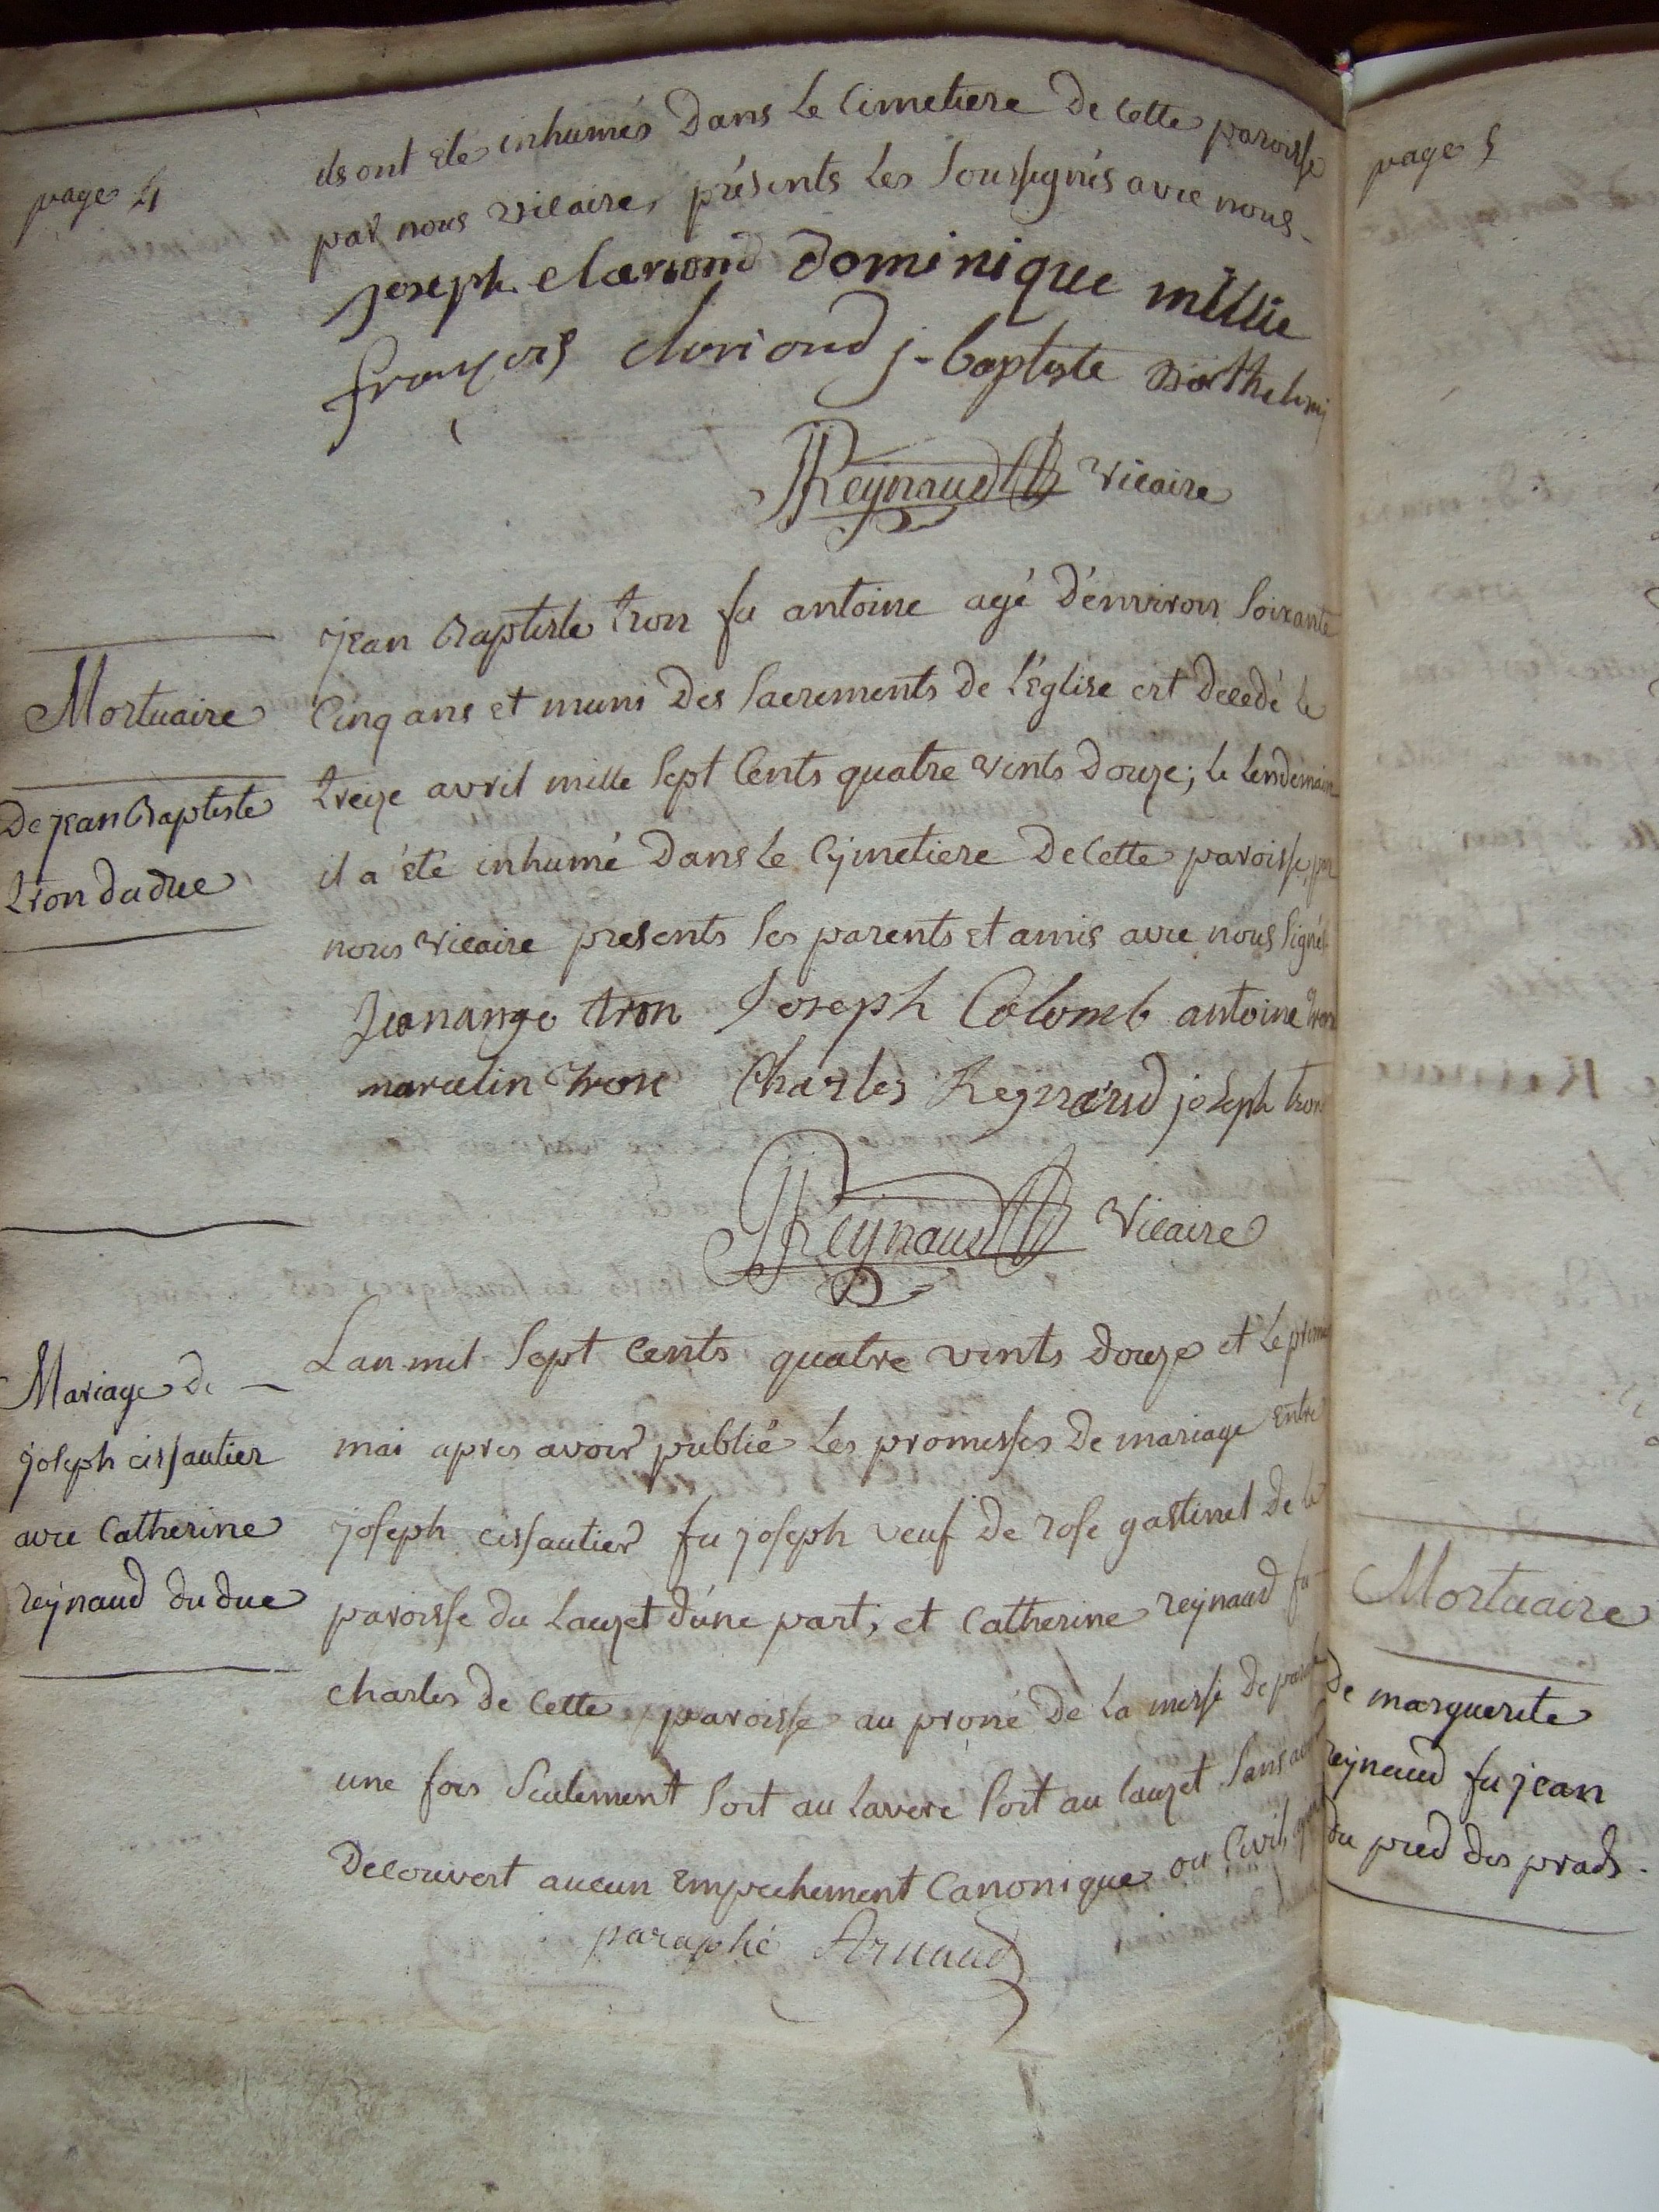 page 4
ils ont ete inhumés dans le Cimetiere de Cette paroisse
par nous vicaire, présents les soussignés avec nous -
joseph clariond dominique millie
françois cluriond j-baptiste barthelemi
JReynaud vicaire
Mortuaire
De jean Baptiste
tron du duc
jean Baptiste tron fu antoine agé d'environ soixante
Cinq ans et muni des sacrements de l'Eglise est decedé le
treize avril mille sept Cents quatre vints douze; le lendemain
il a été inhumé dans le Cymetiere de Cette paroisse, par
nous vicaire presents ses parents et amis avec nous signés
Jeanange tron Joseph Colomb antoine tron
marcelin tron Charles Reynaud joseph tron
JReynaud Vicaire
Mariage de -
joseph cissautier
avec Catherine
reynaud du duc
Lan mil sept Cents quatre vints douze et le premier
mai apres avoir publié les promesses de mariage entre
joseph cissautier fu joseph veuf de rose gastinel de la
paroisse du Lauzet d'une part, et Catherine reynaud fu
charles de Cette paroisse au prone de la messe de
une fois seulement soit au laverc soit au lauzet sans
decouvert aucun empechement Canonique ou Civil,
paraphé Arnaud
page 5
Mortuaire
De marguerite
reynaud fu jean
du pied des prads.